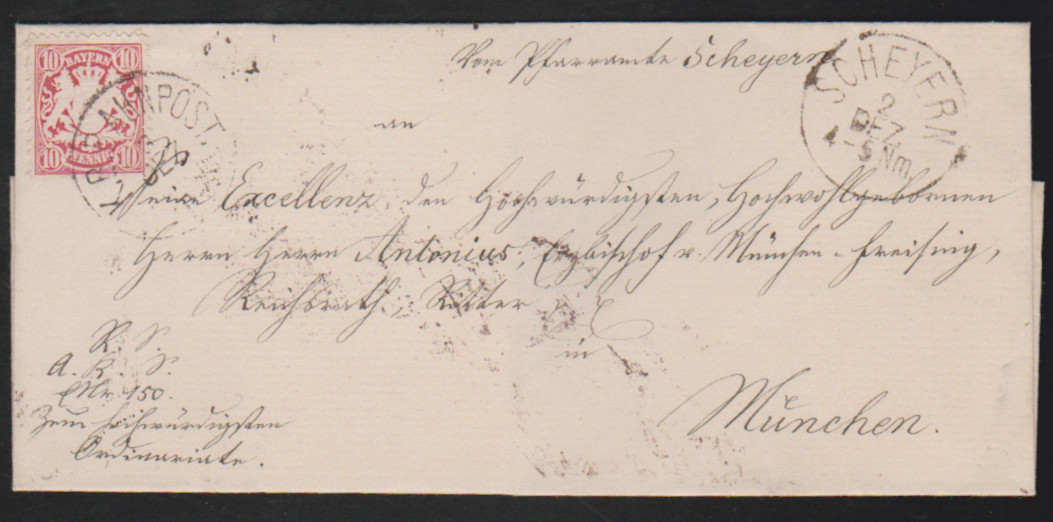 10 BAYERN 10
10 PFENNIG 10
BAHNPOST
DEZ
Vom Pfarramte Scheyern
SCHEYERN
2
DEZ
4-5 Nm.
an
Seine Excellenz, den Hochwürdigsten, Hochwohlgebornen
Herrn Herrn Antonius, Erzbischof v. München-Freising,
Reichsrath, Ritter
in
München.
R. S.
A. K. S.
ENr. 150.
Zum hochwürdigsten
Ordinariate.